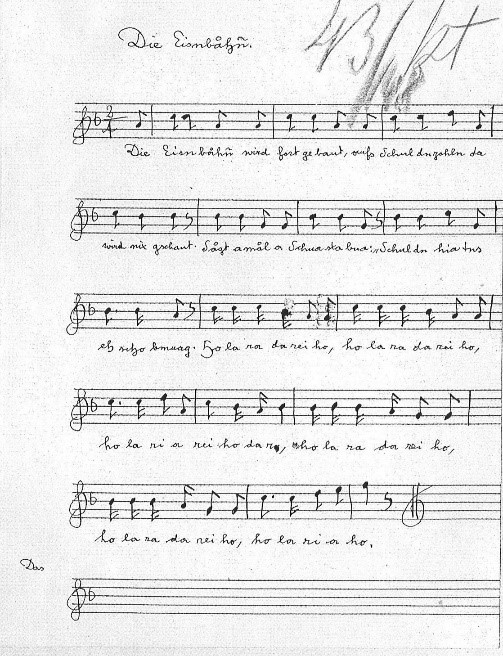 Die Eisnbåhñ.
Die Eisnbåhñ wird fort ge baut, aufs Schuldnzohln da
wird nix gschaut. Sågt amål a Schuasta bua: Schuldn hia tns
eh scho gnuag. Ho la ra da rei ho, ho la ra da rei ho,
ho la ri a rei ho da ro, ho la ra da rei ho,
ho la ra da rei ho, ho la ri a ho.
Das